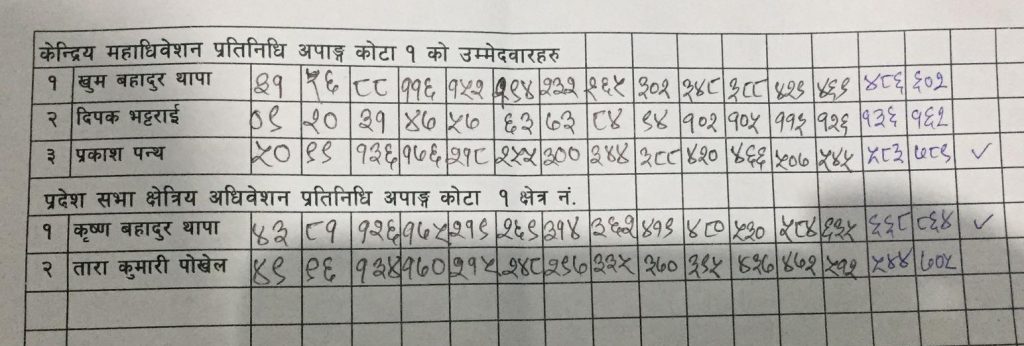 केन्द्रिय महाधिवेशन प्रतिनिधि अपाङ्ग कोटा १ को उम्मेदवारहरु
१ खुम बहादुर थापा ३१ ५६ ८८ ११६ १५२ १९४ २३२ २६५ ३०२ ३४८ ३८८ ४२९ ४६९ ४८६ ६०२
२ दिपक भट्टराई ०९ २० ३१ ४७ ५७ ६३ ७३ ८४ ९४ १०२ १०५ ११६ १२६ १३६ १६२
३ प्रकाश पन्थ ५० ९९ १३६ १७६ २१८ २५५ ३०० ३४४ ३८८ ४२० ४६६ ५०७ ५४५ ५८३ ७८९ ✓
प्रदेश सभा क्षेत्रिय अधिवेशन प्रतिनिधि अपाङ्ग कोटा १ क्षेत्र नं.
१ कृष्ण बहादुर थापा ४३ ८१ १२६ १७५ २१९ २६९ ३१४ ३६२ ४१९ ४८० ५३० ५८४ ६३५ ६६८ ८६४ ✓
२ तारा कुमारी पोखेल ४९ ९६ १३४ १७० २१५ २४८ २९७ ३३५ ३७० ३९५ ४३७ ४७२ ५१२ ५४४ ७०५